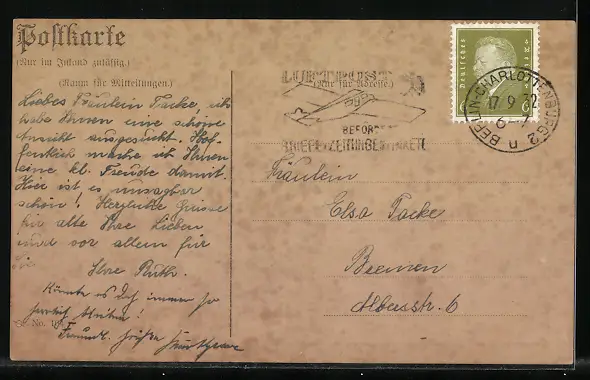 Postkarte
(Nur im Inland zulässig.)
(Raum für Mitteilungen.)
Liebes Fräulein Tacke, ich
habe Ihnen eine schöne
Ansicht ausgesucht. Hof-
fentlich mache ich Ihnen
eine kl. Freude damit.
Hier ist es unsagbar
schön! Herzliche Grüsse
für alle Ihre Lieben
und vor allem für
Sie Ihre Ruth.
Könnte es doch immer so
herrlich bleiben!
Freundl. Grüße
No. 1
LUFTPOST
(Nur für Adresse)
BEFÖRDERT
BRIEFE ZEITUNGEN PAKETE
Deutsches Reich
6
BERLIN-CHARLOTTENBURG 2
17.9.2
6-7
n
Fräulein
Elsa Tacke
Bremen
Albusstr. 6